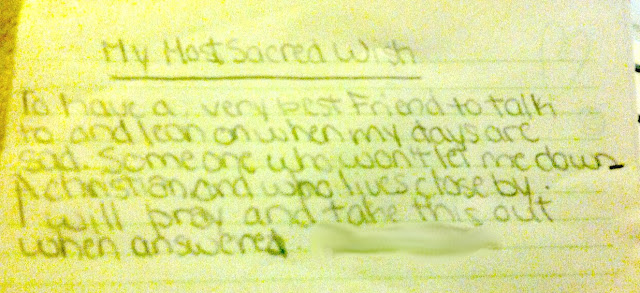 My Most Sacred Wish
To have a very best Friend to talk
to and lean on when my days are
sad. Someone who won't let me down
A christian and who lives close by.
I will pray and take this out
when answered